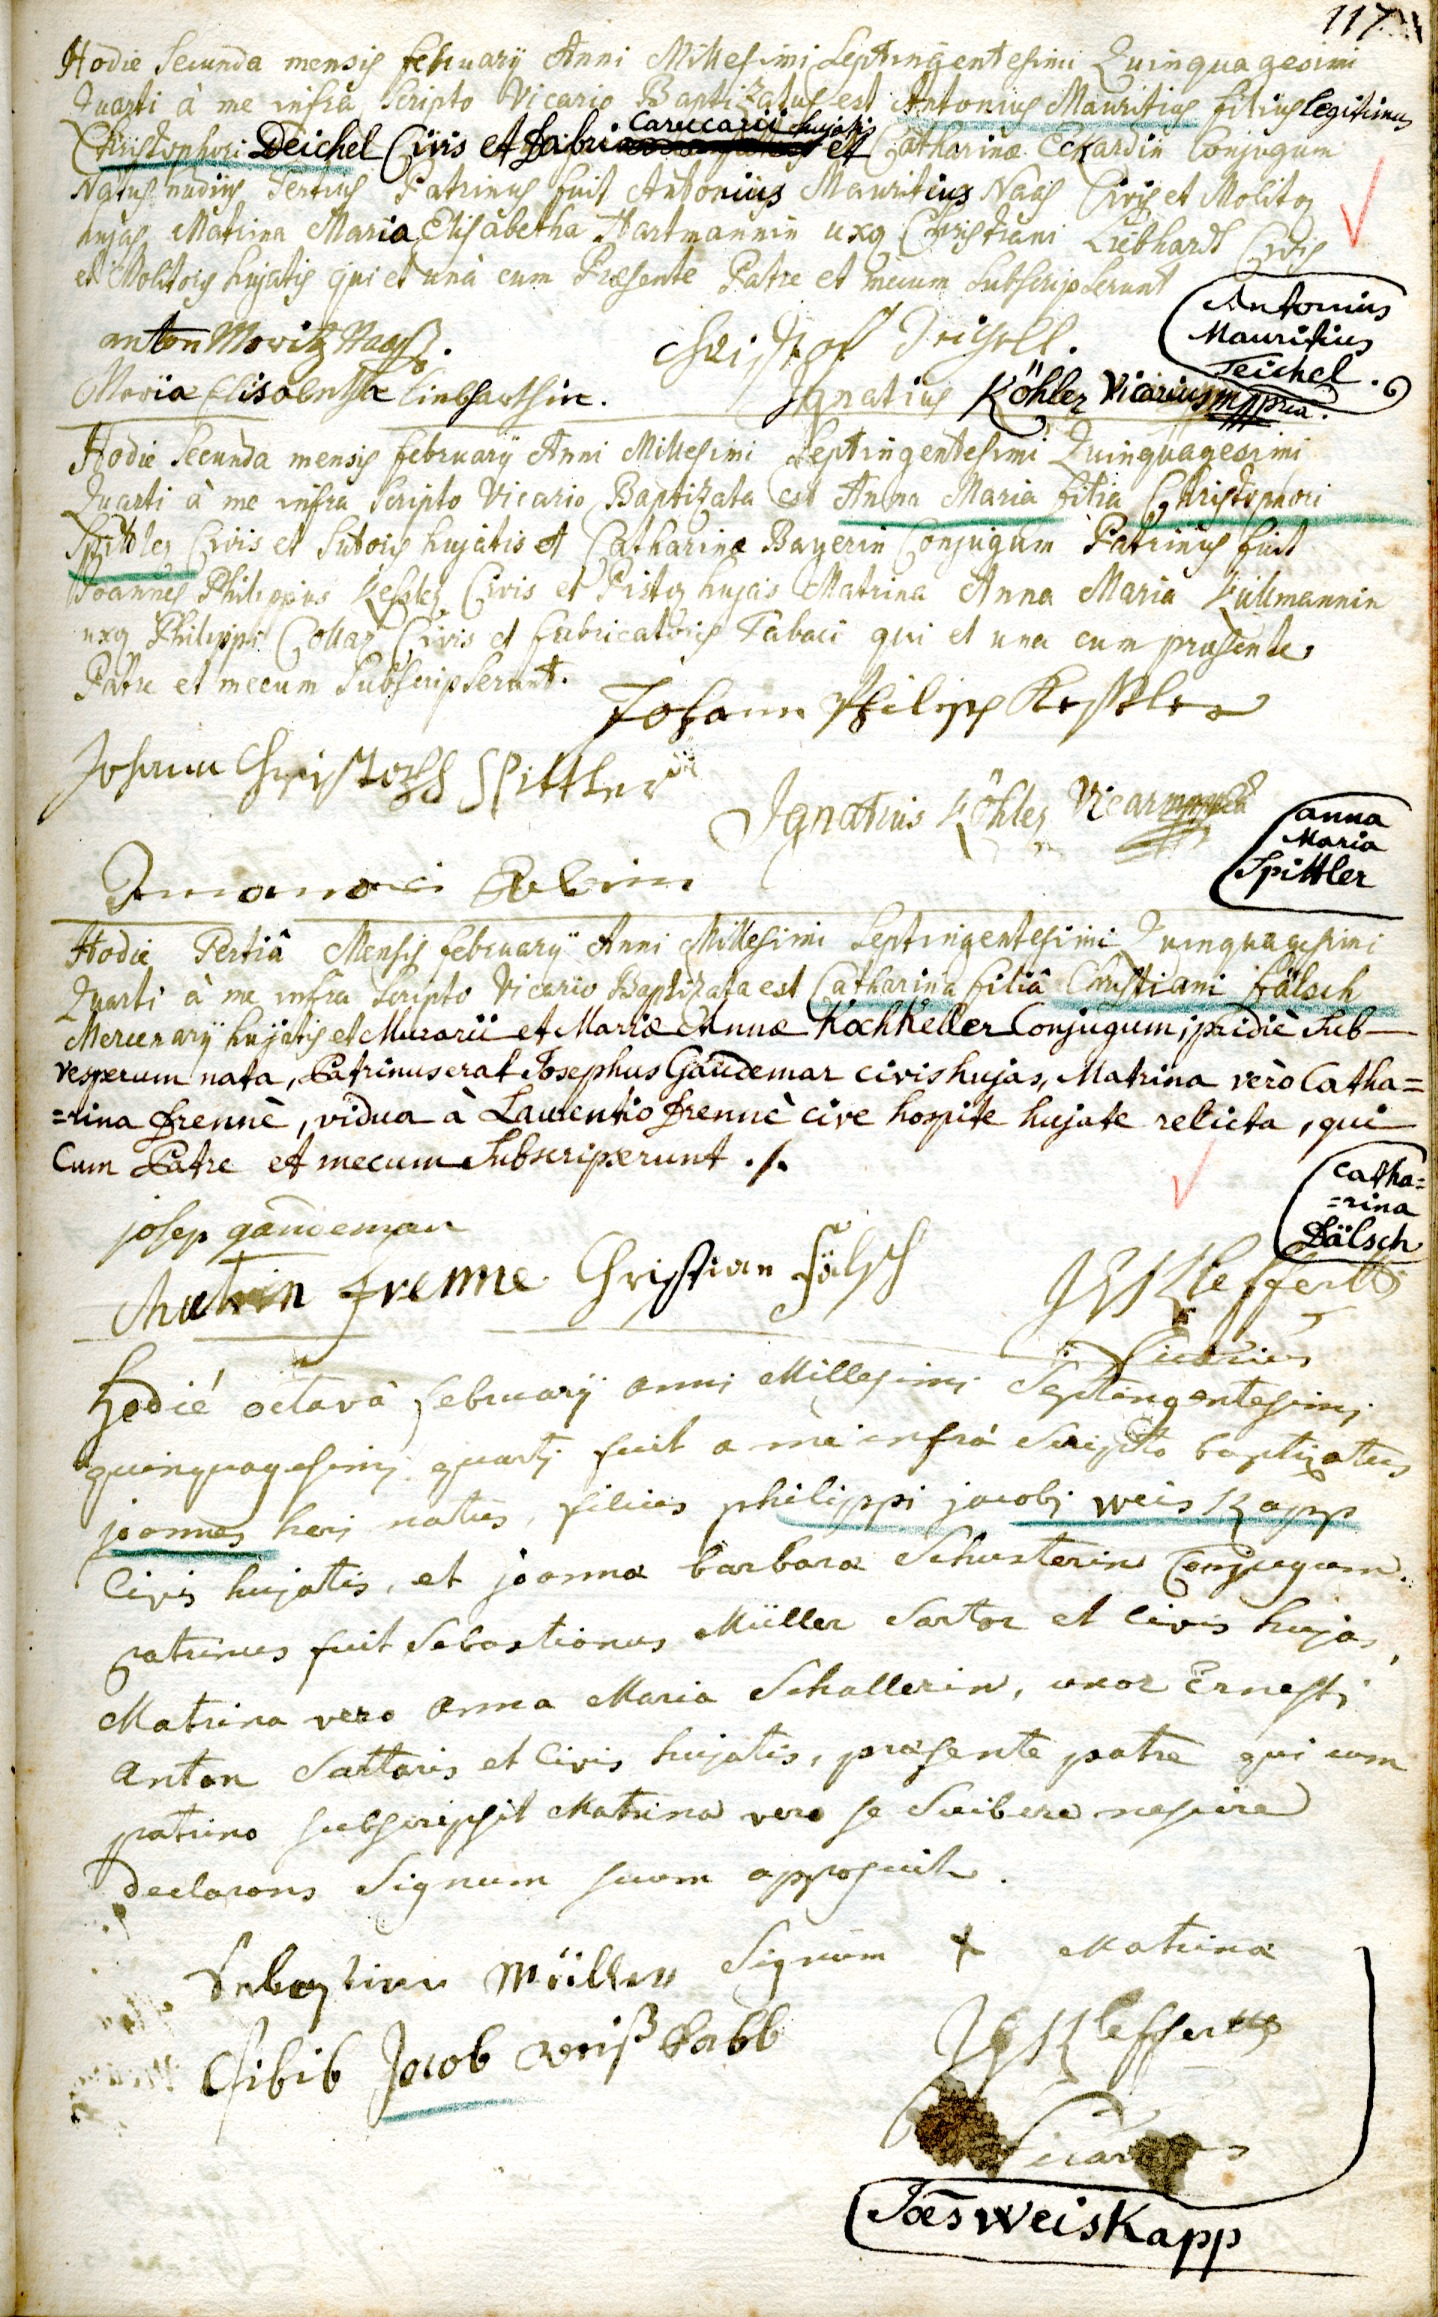 117
Hodie Secunda mensis february Anni Millesimi Septingentesimi Quinquagesimi
Quarti à me infrà Scripto Vicario Baptizatus est Antonius Mauritius filius legitimus
Christophori Deichel Civis et Fabri Carucarii hujatis et Catharinæ Eckardin Conjugum
Natus nudius Tertius Patrinus fuit Antonius Mauritius Naas Civis et Molitor
hujas, Matrina Maria Elisabetha Hartmannin uxor Christiani Liebhardt Civis
et Molitoris hujatis qui et unà cum Præsente Patre et mecum Subscripserunt
Antonius
Mauritius
Teichel.
anton Moritz Naaß.
Christof Deichell.
Maria Elisabetha Liebharthin.
Ignatius Köhler Vicarius mppria.
Hodie Secunda mensis february Anni Millesimi Septingentesimi Quinquagesimi
Quarti à me infra Scripto Vicario Baptizata est Anna Maria filia Christophori
Spittler Civis et Sutoris hujatis et Catharinæ Bayerin Conjugum Patrinus fuit
Joannes Philippus Kessler Civis et Pistor hujas Matrina Anna Maria Küllmannin
uxor Philippi Collas Civis et fabricatoris Tabaci qui et una cum præsente
Patre et mecum Subscripserunt.
Johann Philipp Kessler
Johann Christoph Spittler
Ignatius Köhler Vicar
anna
Maria
Spittler
Hodie Tertiâ Mensis february Anni Millesimi Septingentesimi Quinquagesimi
Quarti à me infra Scripto Vicario Baptizata est Catharina filiâ Christiani fälsch
Mercenarÿ hujatis et Murarii et Mariæ Annæ Kochkeller Conjugum, pridiè Sub
vesperum nata, Patrinus erat Josephus Gaudemar civis hujas, Matrina verò Catha=
=rina Frennè, vidua à Laurentio Frennè cive hospite hujate relicta, qui
Cum Patre et mecum Subscripserunt ./.
Catha=
=rina
Fälsch
josep gaudemar
frenne Christian fälsch
Kleffert
Vicarius
hodié octavà februarÿ anni Millesimi Septingentesimi
quinquagesimi quarti fuit a me infrà Scripto baptizatus
joannes heri natus, filius philippi jacobi weis Kapp
Civis hujatis, et joanna barbara Schusterin Conjugum.
patrinus fuit Sebastianus Müller Sartor et Civis hujas,
Matrina vero anna Maria Schallerin, uxor Ernesti
anton Sartoris et Civis hujatis, præsente patre qui cum
patrino subscripsit Matrina vero se Scibere nescire
declarans Signum suum apposuit.
Sebastian Müller Signum + Matrina
Jacob weiß kabb
Kleffert
Vicarius
Joēs weisKapp